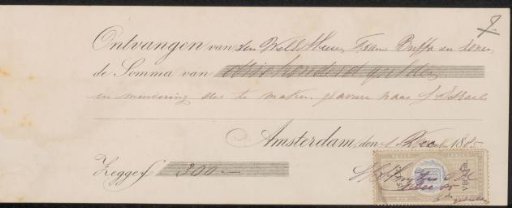 Ontvangen van den Wel Ed. Heer Frans Buffa en Zonen
de Somma van driehonderd gulden
in mindering der te maken gravure naar J. Israels
Amsterdam, den 1 Dec 18
Zegge ƒ 300 —